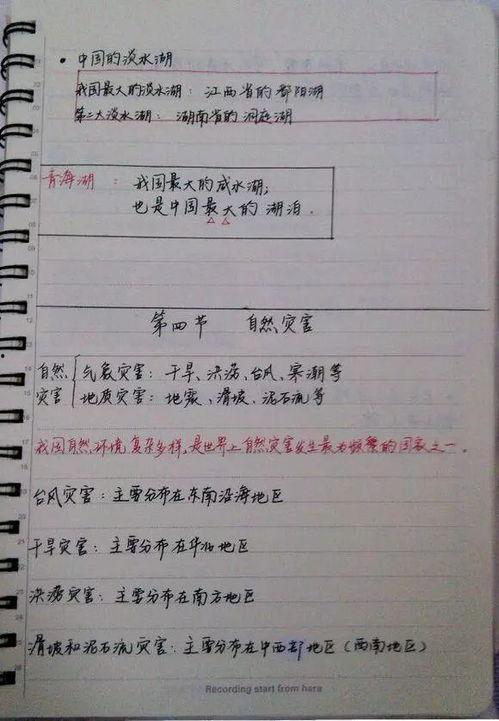 • 中国的淡水湖
我国最大的淡水湖：江西省的鄱阳湖
第二大淡水湖：湖南省的洞庭湖
青海湖：我国最大的咸水湖；
也是中国最大的湖泊．
第四节 自然灾害
自然灾害 { 气象灾害：干旱、洪涝、台风、寒潮等
地质灾害：地震、滑坡、泥石流等
我国自然环境复杂多样，是世界上自然灾害发生最为频繁的国家之一．
台风灾害：主要分布在东南沿海地区
干旱灾害：主要分布在华北地区
洪涝灾害：主要分布在南方地区
滑坡和泥石流灾害：主要分布在中西部地区（西南地区）
Recording start from here